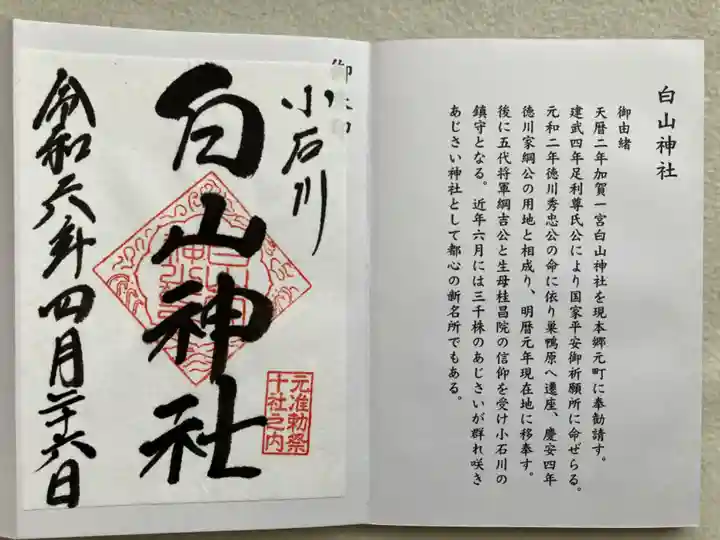 白山神社
御由緒
天暦二年加賀一宮白山神社を現本郷元町に奉勧請す。
建武四年足利尊氏公により国家平安御祈願所に命ぜらる。
元和二年徳川秀忠公の命に依り巣鴨原へ遷座、慶安四年
徳川家綱公の用地と相成り、明暦元年現在地に移奉す。
後に五代将軍綱吉公と生母桂昌院の信仰を受け小石川の
鎮守となる。近年六月には三千株のあじさいが群れ咲き
あじさい神社として都心の新名所でもある。
小石川
白山神社
元准勅祭
十社之内
令和六年四月二十六日